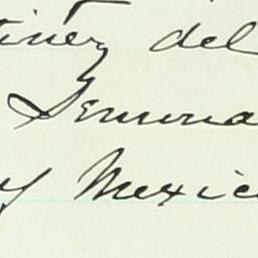 tinez del
Semina
y Mexic